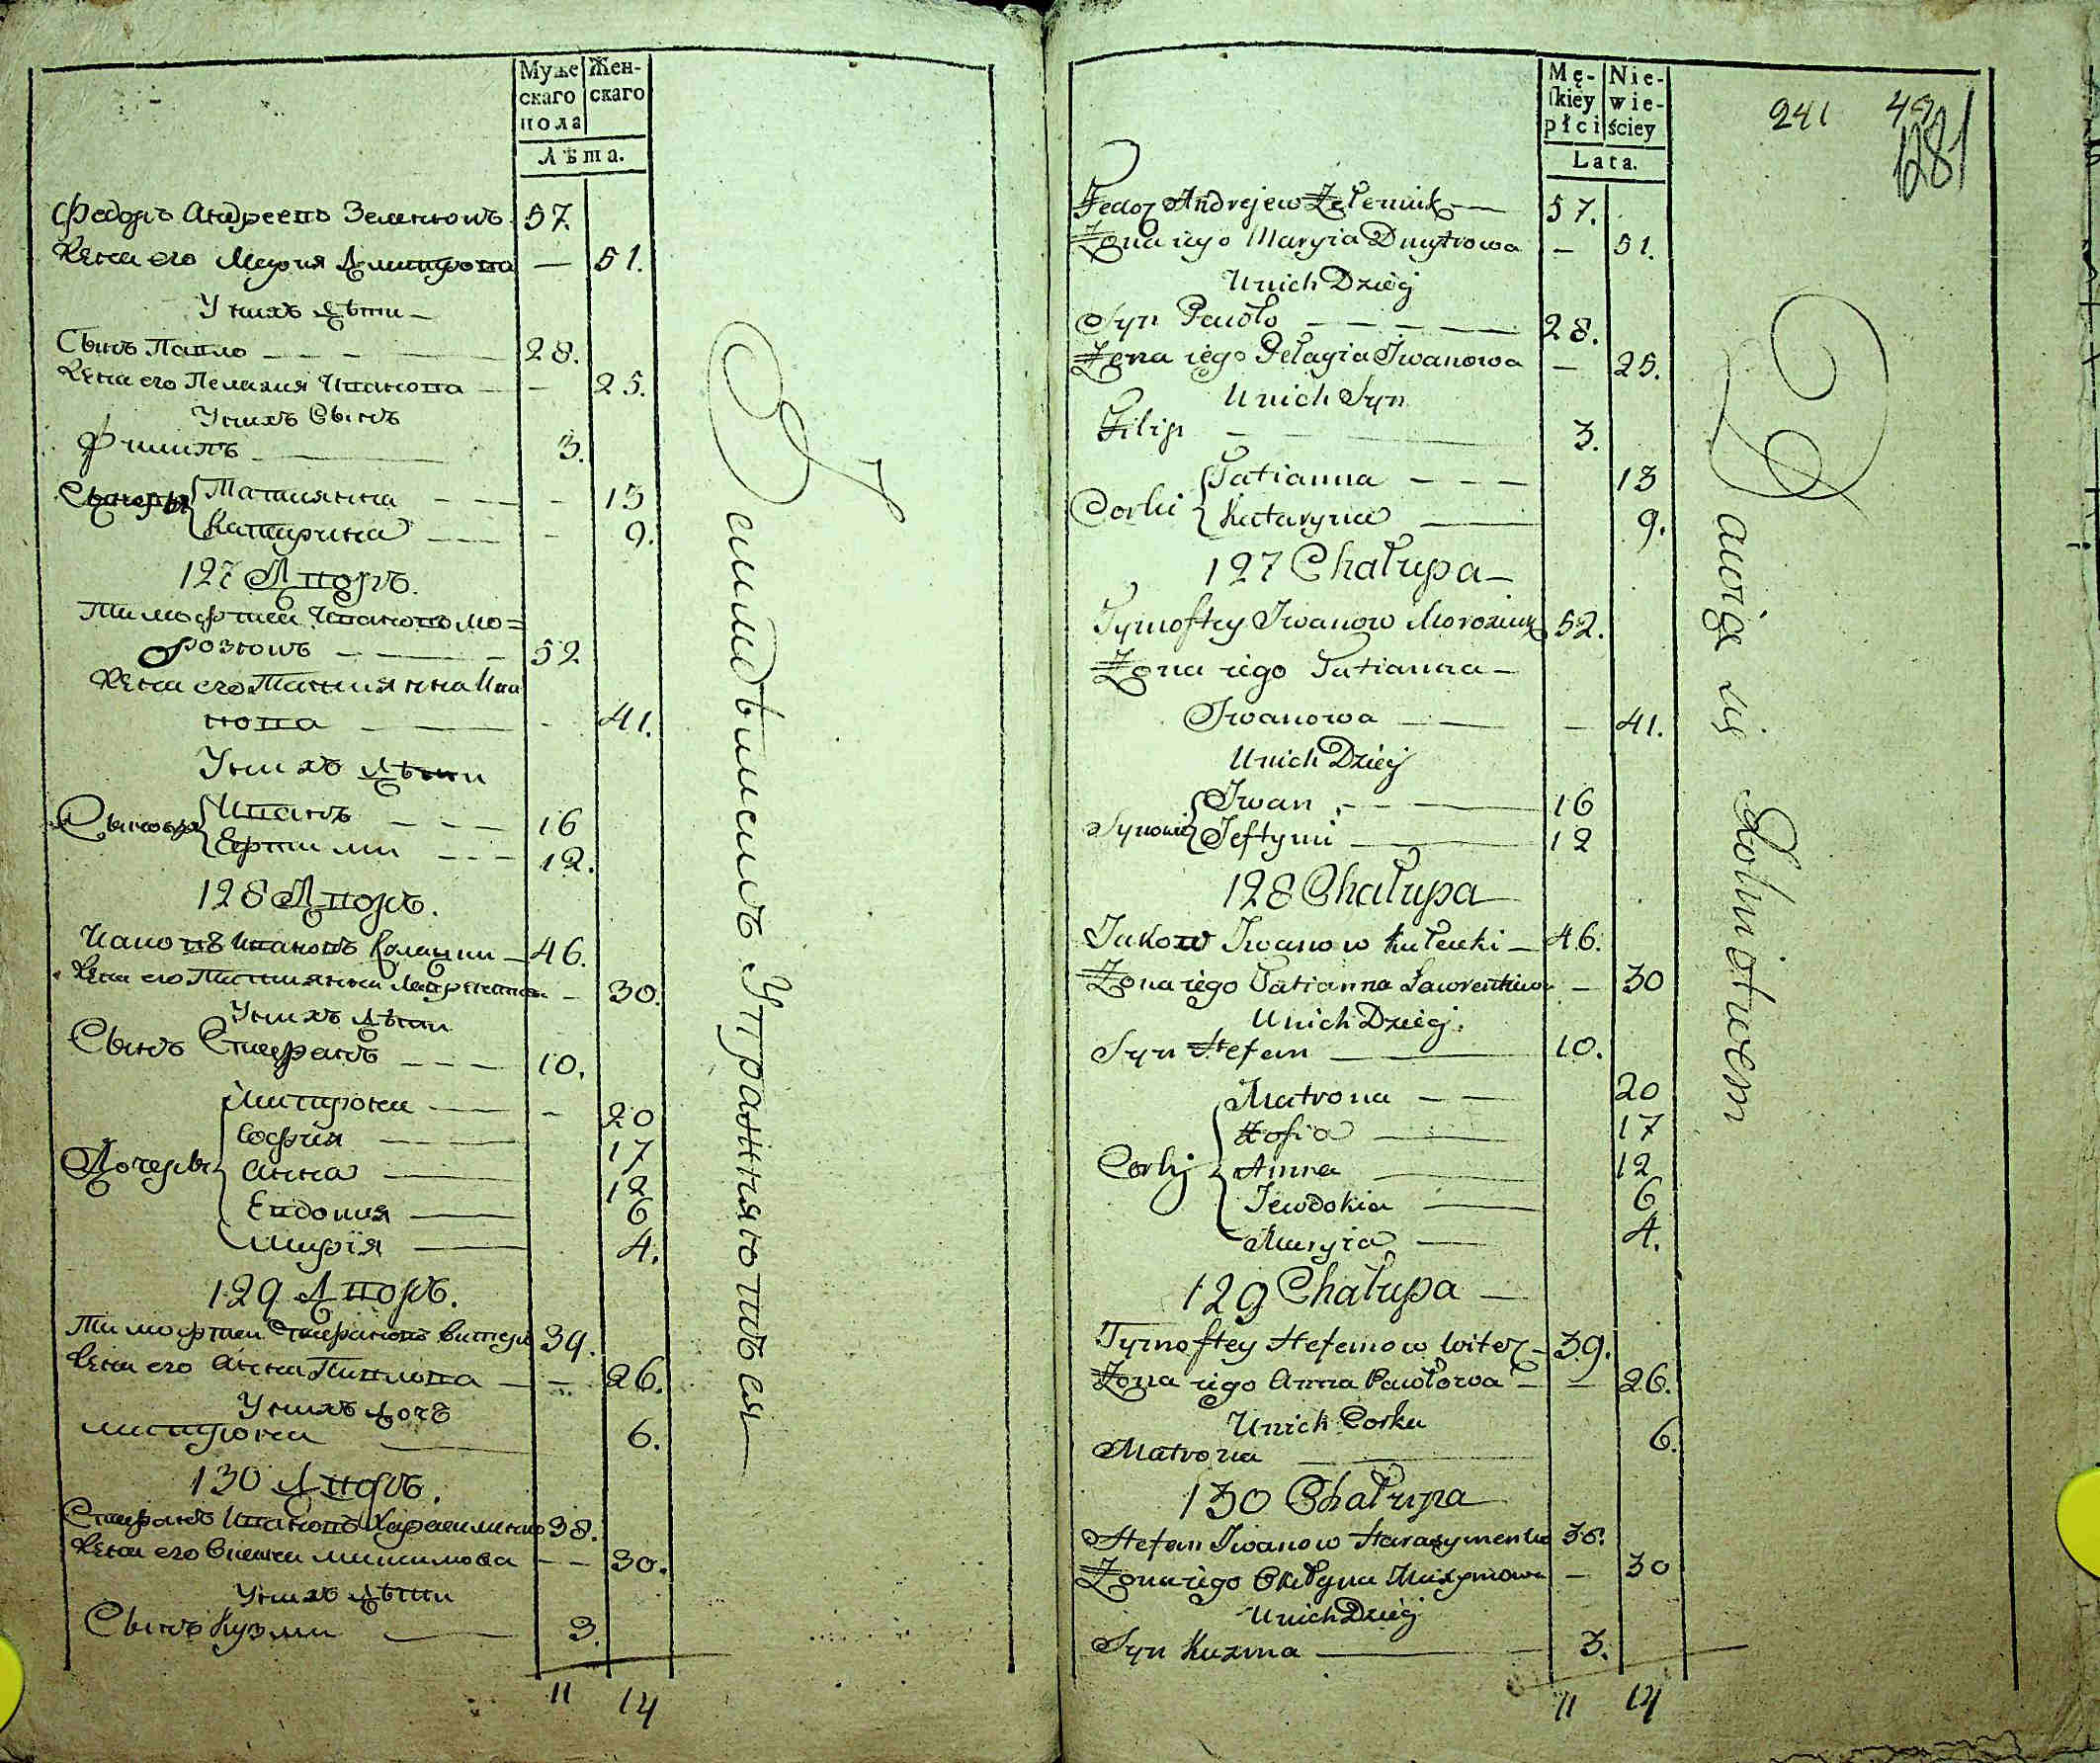 Муже Жен-
скаго скаго
пола
Лѣта.
Федоръ Андреевъ Зеленюкъ 57.
Жена его Мария Дмитрова — 51.
У нихъ Дѣти —
Сынъ Павло — — — 28.
Жена его Пелагия Иванова — — 25.
У нихъ Сынъ
Филипъ — 3.
Татиянна — — — 13
Катерина — — 9.
127 Дворъ.
Тимофтей Ивановъ Мо=
розюкъ — — 52
Жена его Татиянна Ива
нова — — 41.
У нихъ Дѣти
Сыновья Иванъ — — — 16
Ефтими — — — 12.
128 Дворъ.
Яковъ Ивановъ — 46.
Жена его Татиянна — 30.
У нихъ Дѣти
Сынъ Стефанъ — — — 10.
Митрона — — 20
София — — 17
Дочеры Анна — 12
Евдокия — 6
Мария — 4.
129 Дворъ.
Тимофтей Стефановъ Витеръ 39.
Жена его Анна Павлова — — 26.
У нихъ Дочь
Митрона — 6.
130 Дворъ.
Стефанъ Ивановъ Харасименко 38.
Жена его Максимова — — 30.
У нихъ Дѣти
Сынъ Кузма — 3.
11 14
Земледѣлиемъ Упражняютъся —
Mę- Nie-
skiey wie-
płci ściey
Lata.
241
281
Fedor Andrejew Zeleniuk — 57.
Żona iego Maryia Dmytrowa — 51.
U nich Dzieci
Syn Pawło — — — — 28.
Żona iego Pelagia Iwanowa — 25.
U nich Syn
Filip — — 3.
Tatianna — — — 13
Corki Kataryna — 9.
127 Chałupa —
Tymoftey Iwanow Moroziuk 52.
Żona iego Tatianna —
Iwanowa — — 41.
U nich Dzieci
Iwan — — — 16
Synowie Jeftymi — 12
128 Chałupa
Jakow Iwanow — 46.
Żona iego Tatianna Ławrentiewa — 30
U nich Dzieci.
Syn Stefan — 10.
Matrona — — 20
Zofia — 17
Corki Anna — 12
Jewdokia — 6
Maryia — 4.
129 Chałupa —
Tymoftey Stefanow Witer — 39.
Żona iego Anna Pawłowa — — 26.
U nich Corka
Matrona — 6.
130 Chałupa
Stefan Iwanow Harasymenko 38.
Żona iego Maxymowa — 30
U nich Dzieci
Syn Kuzma — 3.
11 14
Bawią się Rolnictwem